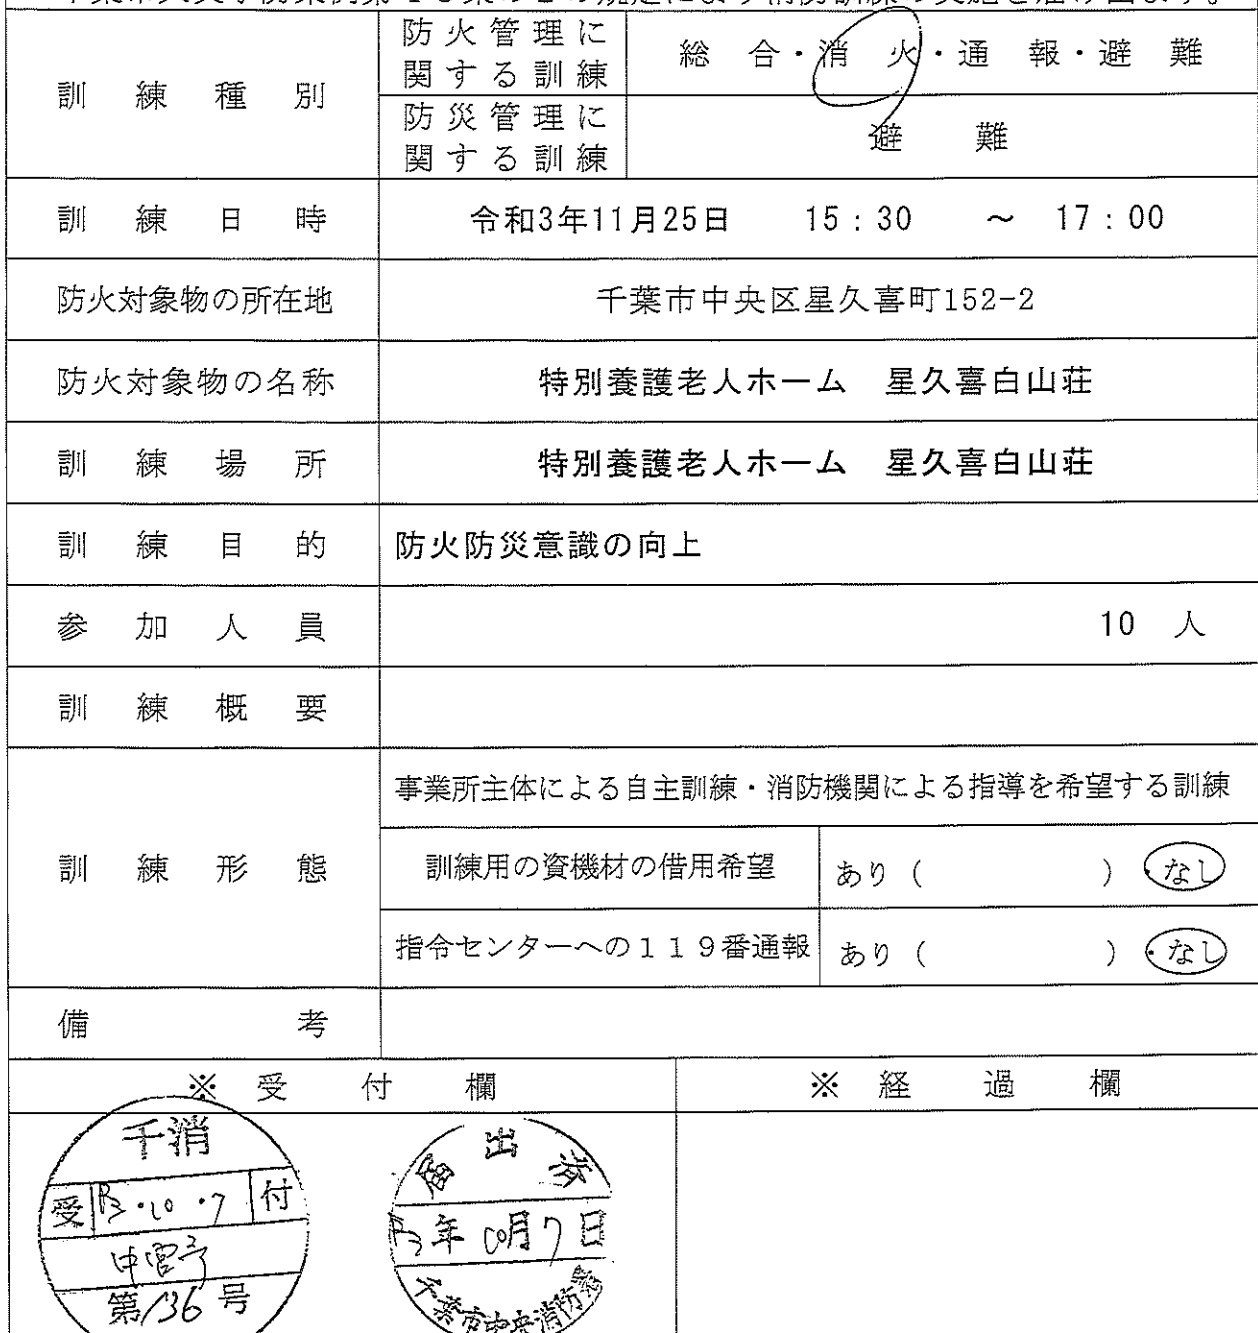 訓練種別
防火管理に
関する訓練
総合・消火・通報・避難
防災管理に
関する訓練
避難
訓練日時
令和3年11月25日 15:30 ~ 17:00
防火対象物の所在地
千葉市中央区星久喜町152-2
防火対象物の名称
特別養護老人ホーム 星久喜白山荘
訓練場所
特別養護老人ホーム 星久喜白山荘
訓練目的
防火防災意識の向上
参加人員
10 人
訓練概要
訓練形態
事業所主体による自主訓練・消防機関による指導を希望する訓練
訓練用の資機材の借用希望
あり( )・なし
指令センターへの119番通報
あり( )・なし
備考
※ 受付欄
※ 経過欄
千消
受 R3・10・7 付
第136号
届出済
R3年10月7日
千葉市中央消防署